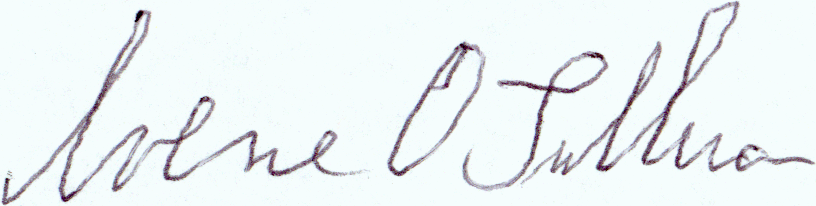 Irene O Sullivan